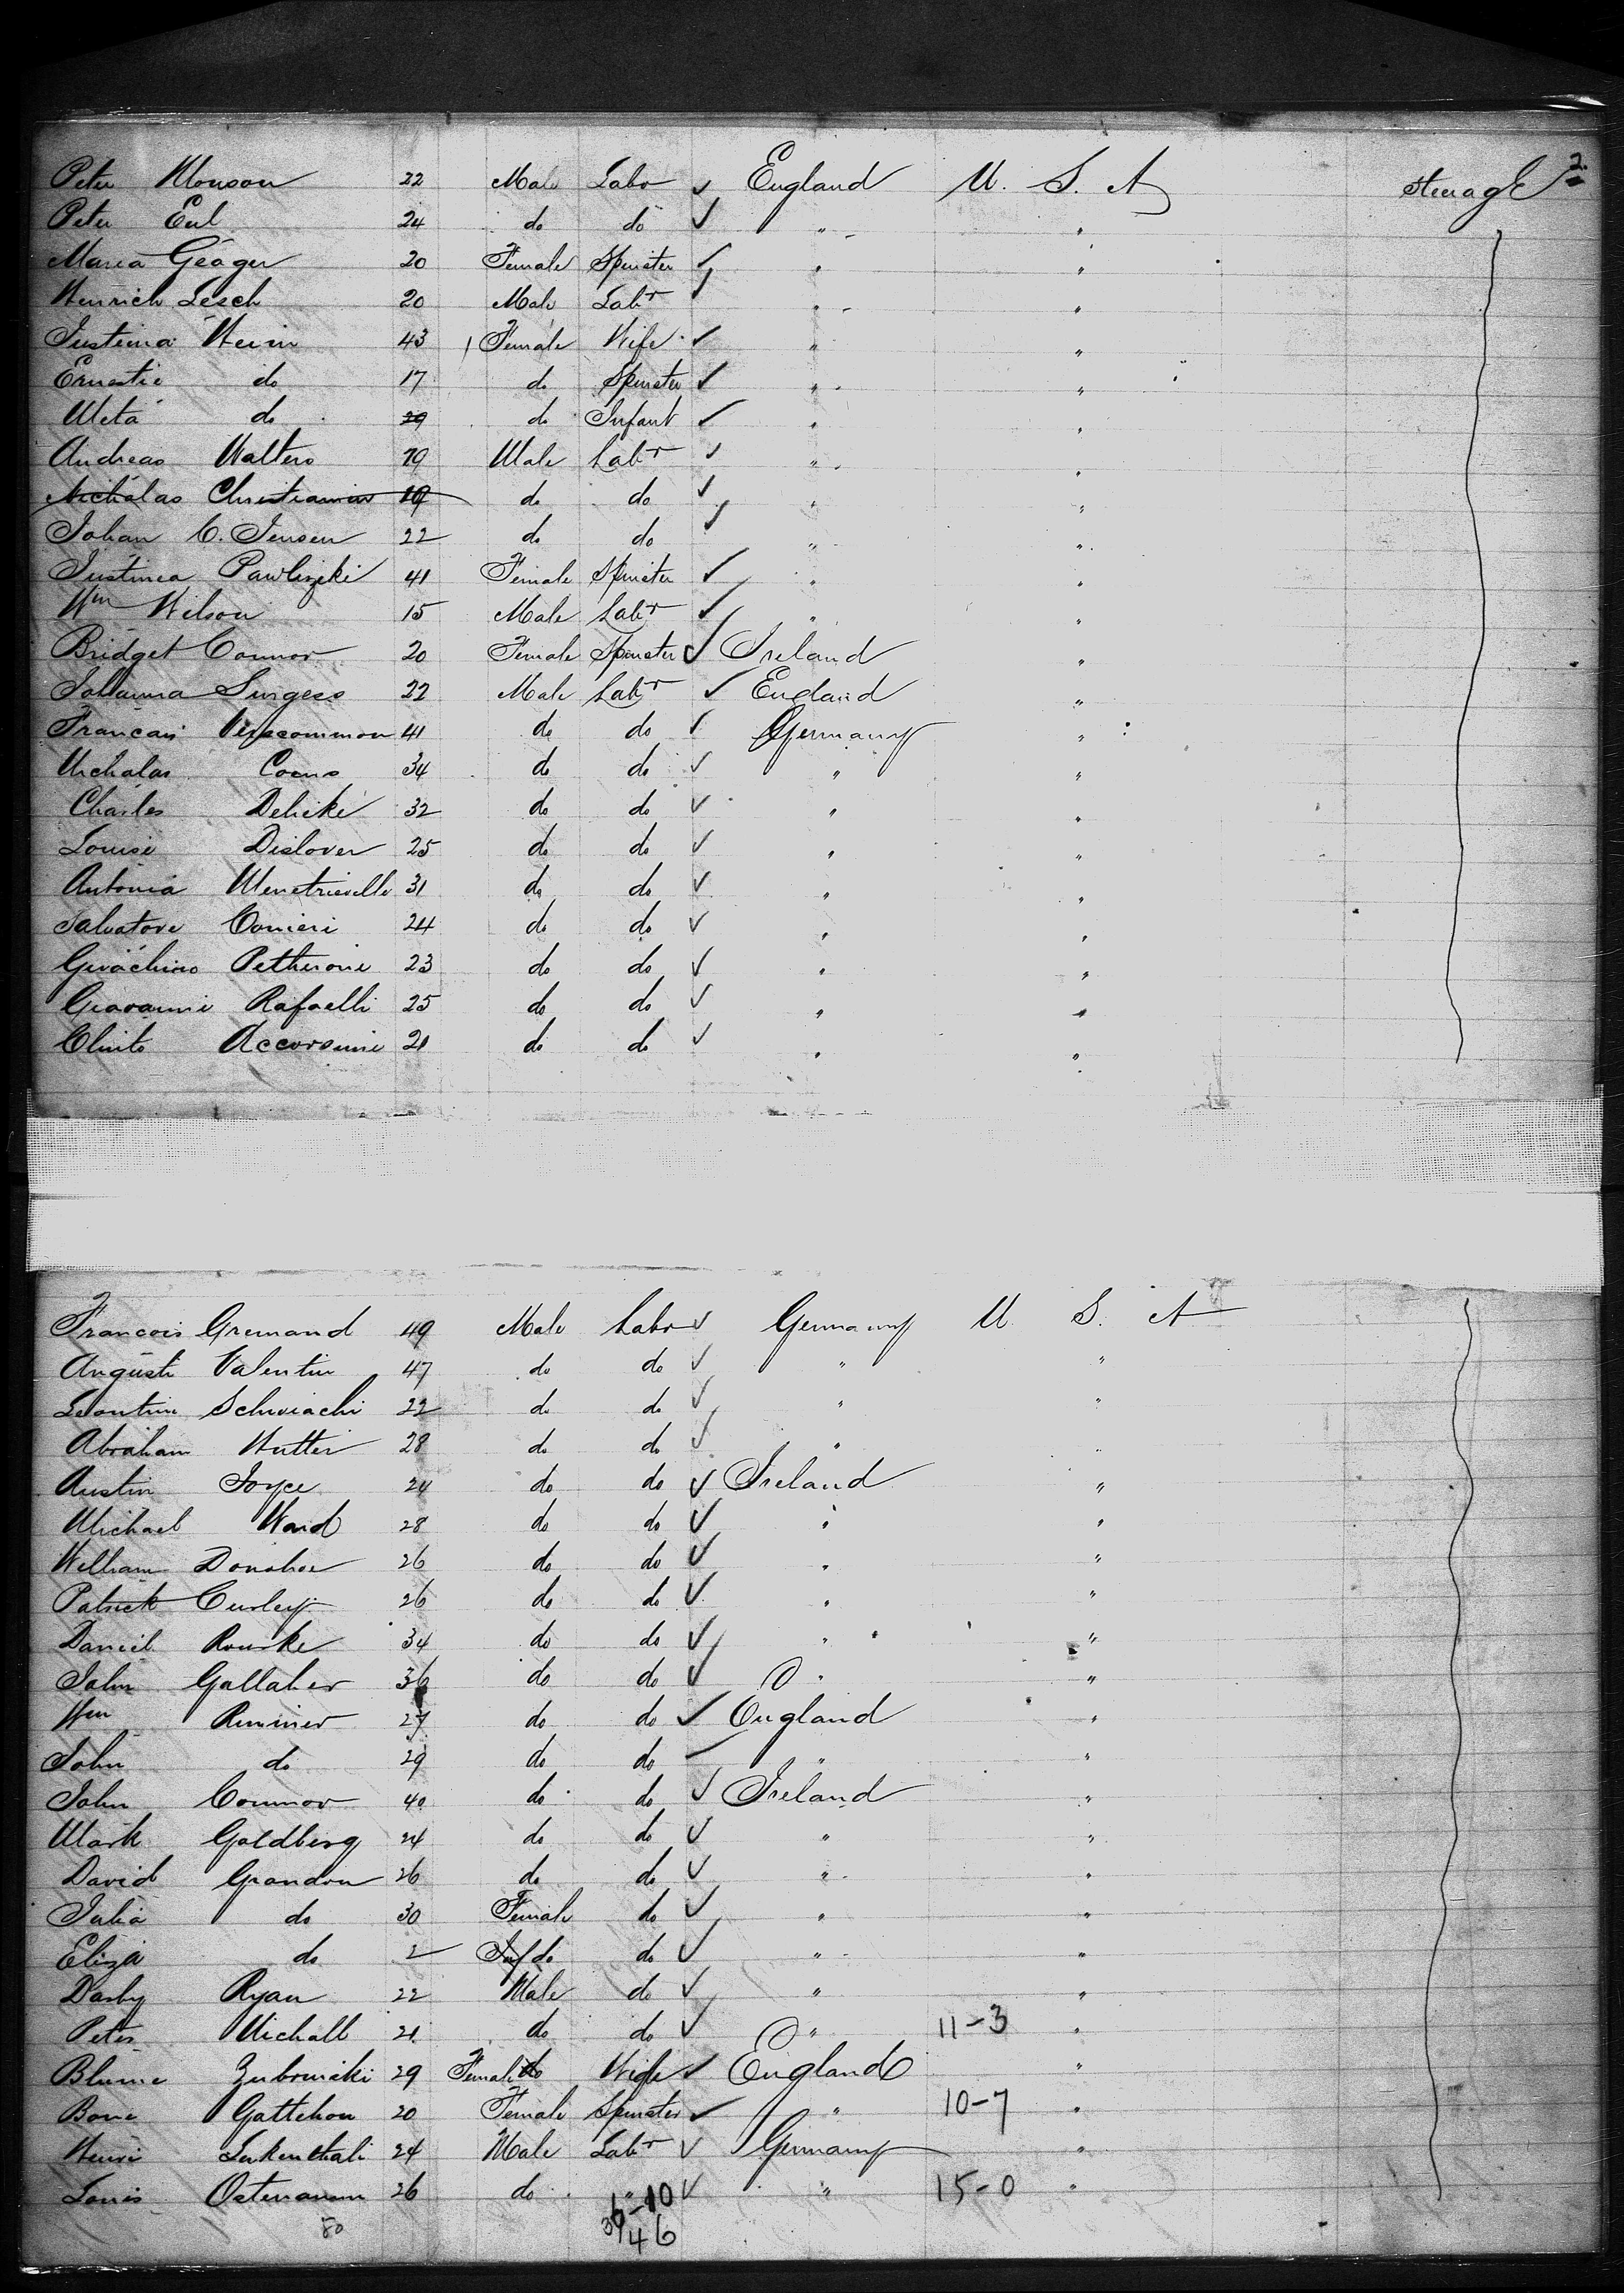 2
Peter Monson 22 Male Labr ✓ England U. S. A steerage
Peter Eul 24 do do ✓ " "
Maria Geager 20 Female Spinster ✓ " "
Heinrich Lesch 20 Male Labr ✓ " "
Justina Heim 43 Female Wife ✓ " "
Ernestie do 17 do Spinster ✓ " "
Meta do do Infant ✓ " "
Andreas Walters 19 Male Labr ✓ " "
Nicholas Christiansen 19 do do ✓ " "
Johan C. Jensen 22 do do ✓ " "
Justinea Pawlizeki 41 Female Spinster ✓ " "
Wm Wilson 15 Male Labr ✓ " "
Bridget Connor 20 Female Spinster ✓ Ireland "
Johanna Surgess 22 Male Labr ✓ England "
Francais 41 do do ✓ Germany "
Nicholas Coens 34 do do ✓ " "
Charles Delicke 32 do do ✓ " "
Louise Dislover 25 do do ✓ " "
Antonia 31 do do ✓ " "
Salvatore Conieri 24 do do ✓ " "
Gioachino Petherone 23 do do ✓ " "
Giovanni Rafaelli 25 do do ✓ " "
Clinto Accorsini 21 do do ✓ " "
Francois Gremand 49 Male Labr ✓ Germany U. S. A
August Valentin 47 do do ✓ " "
Leontine Schuiachi 22 do do ✓ " "
Abraham Hutter 28 do do ✓ " "
Austin Joyce 24 do do ✓ Ireland "
Michael Ward 28 do do ✓ " "
William Donohoe 26 do do ✓ " "
Patrick Curley 26 do do ✓ " "
Daniel Rourke 34 do do ✓ " "
John Gallaher 36 do do ✓ " "
Wm Rimmer 27 do do ✓ England "
John do 29 do do " "
John Connor 40 do do ✓ Ireland "
Mark Goldberg 24 do do ✓ " "
David Grandon 26 do do ✓ " "
Julia do 30 Female do ✓ " "
Eliza do 2 Inf do do ✓ " "
Darby Ryan 22 Male do ✓ " "
Peter Nichall 21 do do ✓ " 11-3 "
Blume Zubrinski 29 Female do Wife ✓ England "
Bone Gattehon 20 Female Spinster ✓ " 10-7 "
Henri Lukenthali 24 Male Labr ✓ Germany "
Louis Ostermann 26 do " ✓ " 15-0 "
50 36-10
46